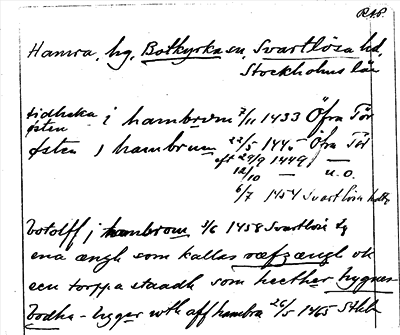 R.A.P.
Hamra, hg, Botkyrka sn, Svartlösa hd,
Stockholms län
tidheka i hambrom 7/11 1433 Öfra Tör
östen
Østen i hambrum 22/5 1445 Öfra Tör
oft 29/9 1449 —
12/10 — u. o.
6/7 1454 Svartlösa
botolff j hambrom 1458 Svartlösa
ena ængh som kallas ræfzængh ok
een torppa stadh som heether hygnes
bodha - ligger wth aff hambra 26/5 1465 Sthlm